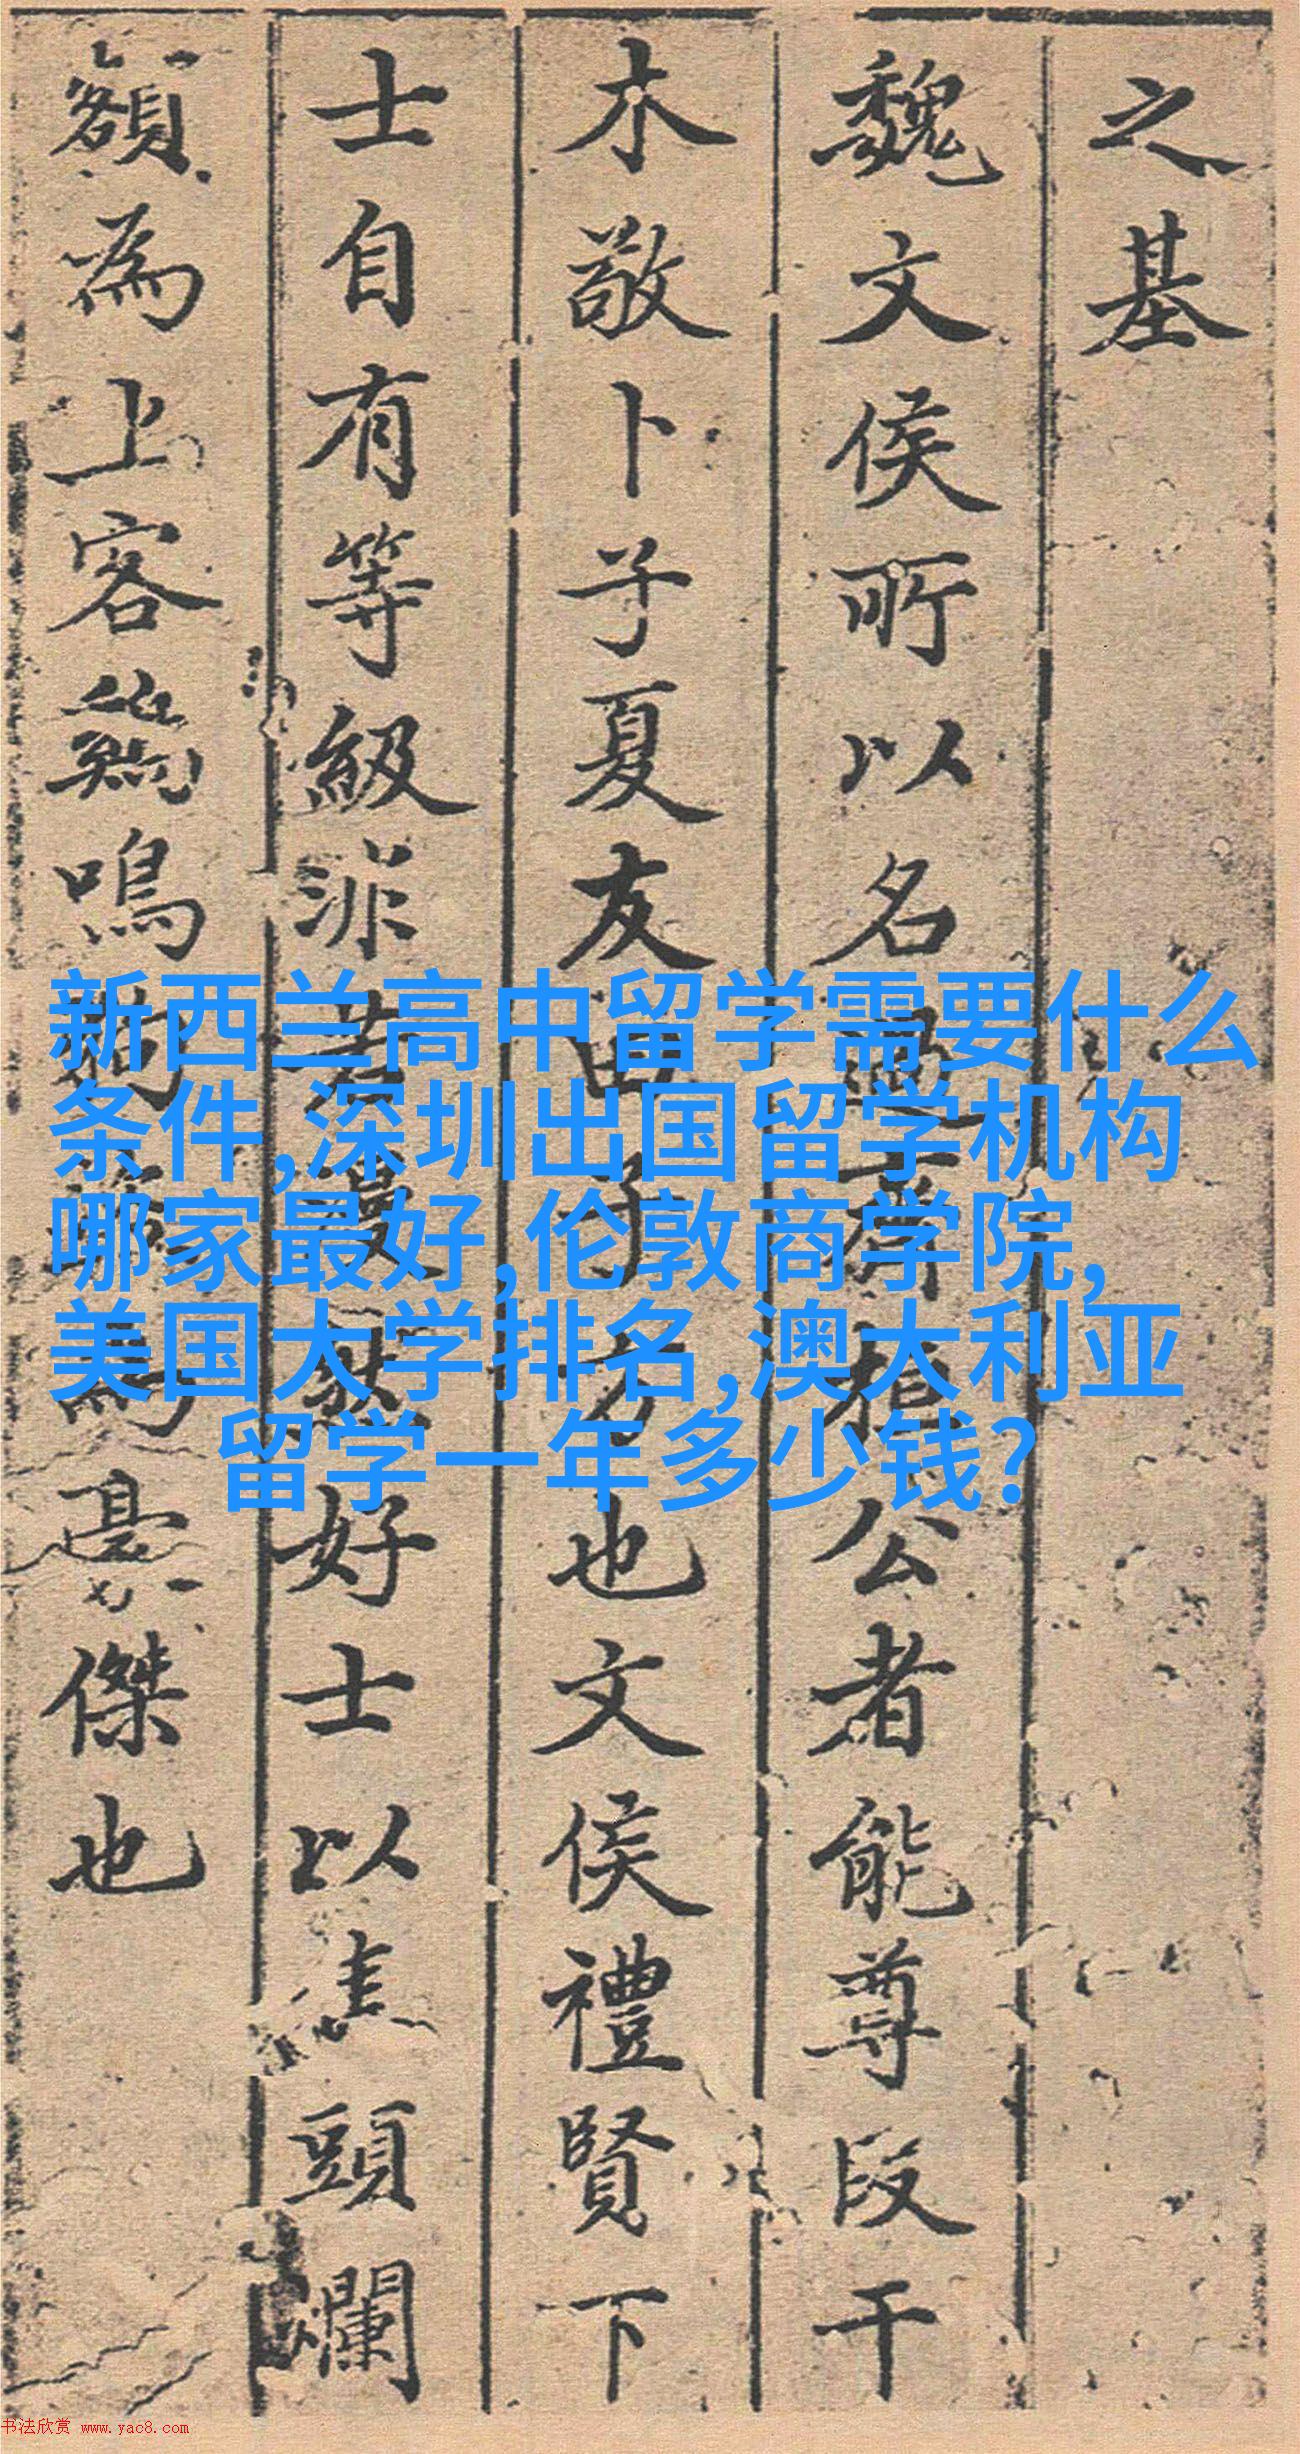 之基
魏文侯所以名過齊桓公者能尊段干
木敬卜子夏友田子方也文侯禮賢下
士自有等級非若漫然好士以焦頭爛
額為上客鷄鳴狗盜為豪傑也
新西兰高中留学需要什么
条件,深圳出国留学机构
哪家最好,伦敦商学院,
美国大学排名,澳大利亚
留学一年多少钱?
书法欣赏 www.yac8.com